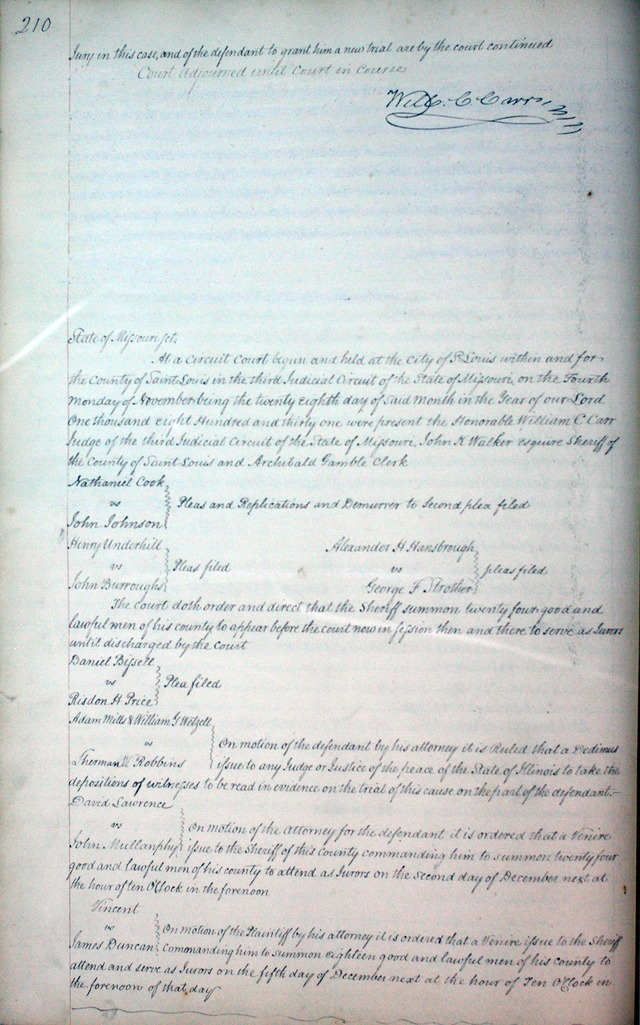 210
Jury in this case, and of the defendant to grant him a new trial are by the court continued
Court adjourned until Court in Course
Will: C. Carr
State of Missouri Sct,
At a Circuit Court begun and held at the City of St Louis within and for
the County of Saint Louis in the third Judicial Circuit of the State of Missouri, on the Fourth
monday of November being the twenty eighth day of said month in the Year of our Lord
One thousand eight Hundred and thirty one were present the Honorable William C Carr
Judge of the third Judicial Circuit of the State of Missouri, John K Walker esquire Sheriff of
the County of Saint Louis and Archibald Gamble Clerk
Nathaniel Cook
vs Pleas and Replications and Demurrer to Second plea filed
John Johnson
Henry Underhill
vs Pleas filed
John Burroughs
Alexander H Hansbrough
vs pleas filed
George F Strother
The court doth order and direct that the Sheriff summon twenty four good and
lawful men of his county to appear before the court now in session then and there to serve as Jurors
until discharged by the court
Daniel Bissell
vs Plea filed
Risdon H Price
Adam Mills & William G Wetzell
vs On motion of the defendant by his attorney it is Ruled that a Dedimus
Robbins issue to any Judge or Justice of the peace of the State of Illinois to take the
depositions of witnesses to be read in evidence on the trial of this cause on the part of the defendant.
David Lawrence
vs On motion of the Attorney for the defendant it is ordered that a Venire
John Mullanphy issue to the Sheriff of this county commanding him to summon twenty four
good and lawful men of his county to attend as Jurors on the second day of December next at
the hour of ten O'Clock in the forenoon
Vincent
vs On motion of the Plaintiff by his attorney it is ordered that a Venire issue to the Sheriff
James Duncan commanding him to summon eighteen good and lawful men of his county to
attend and serve as Jurors on the fifth day of December next at the hour of Ten O'Clock in
the forenoon of that day